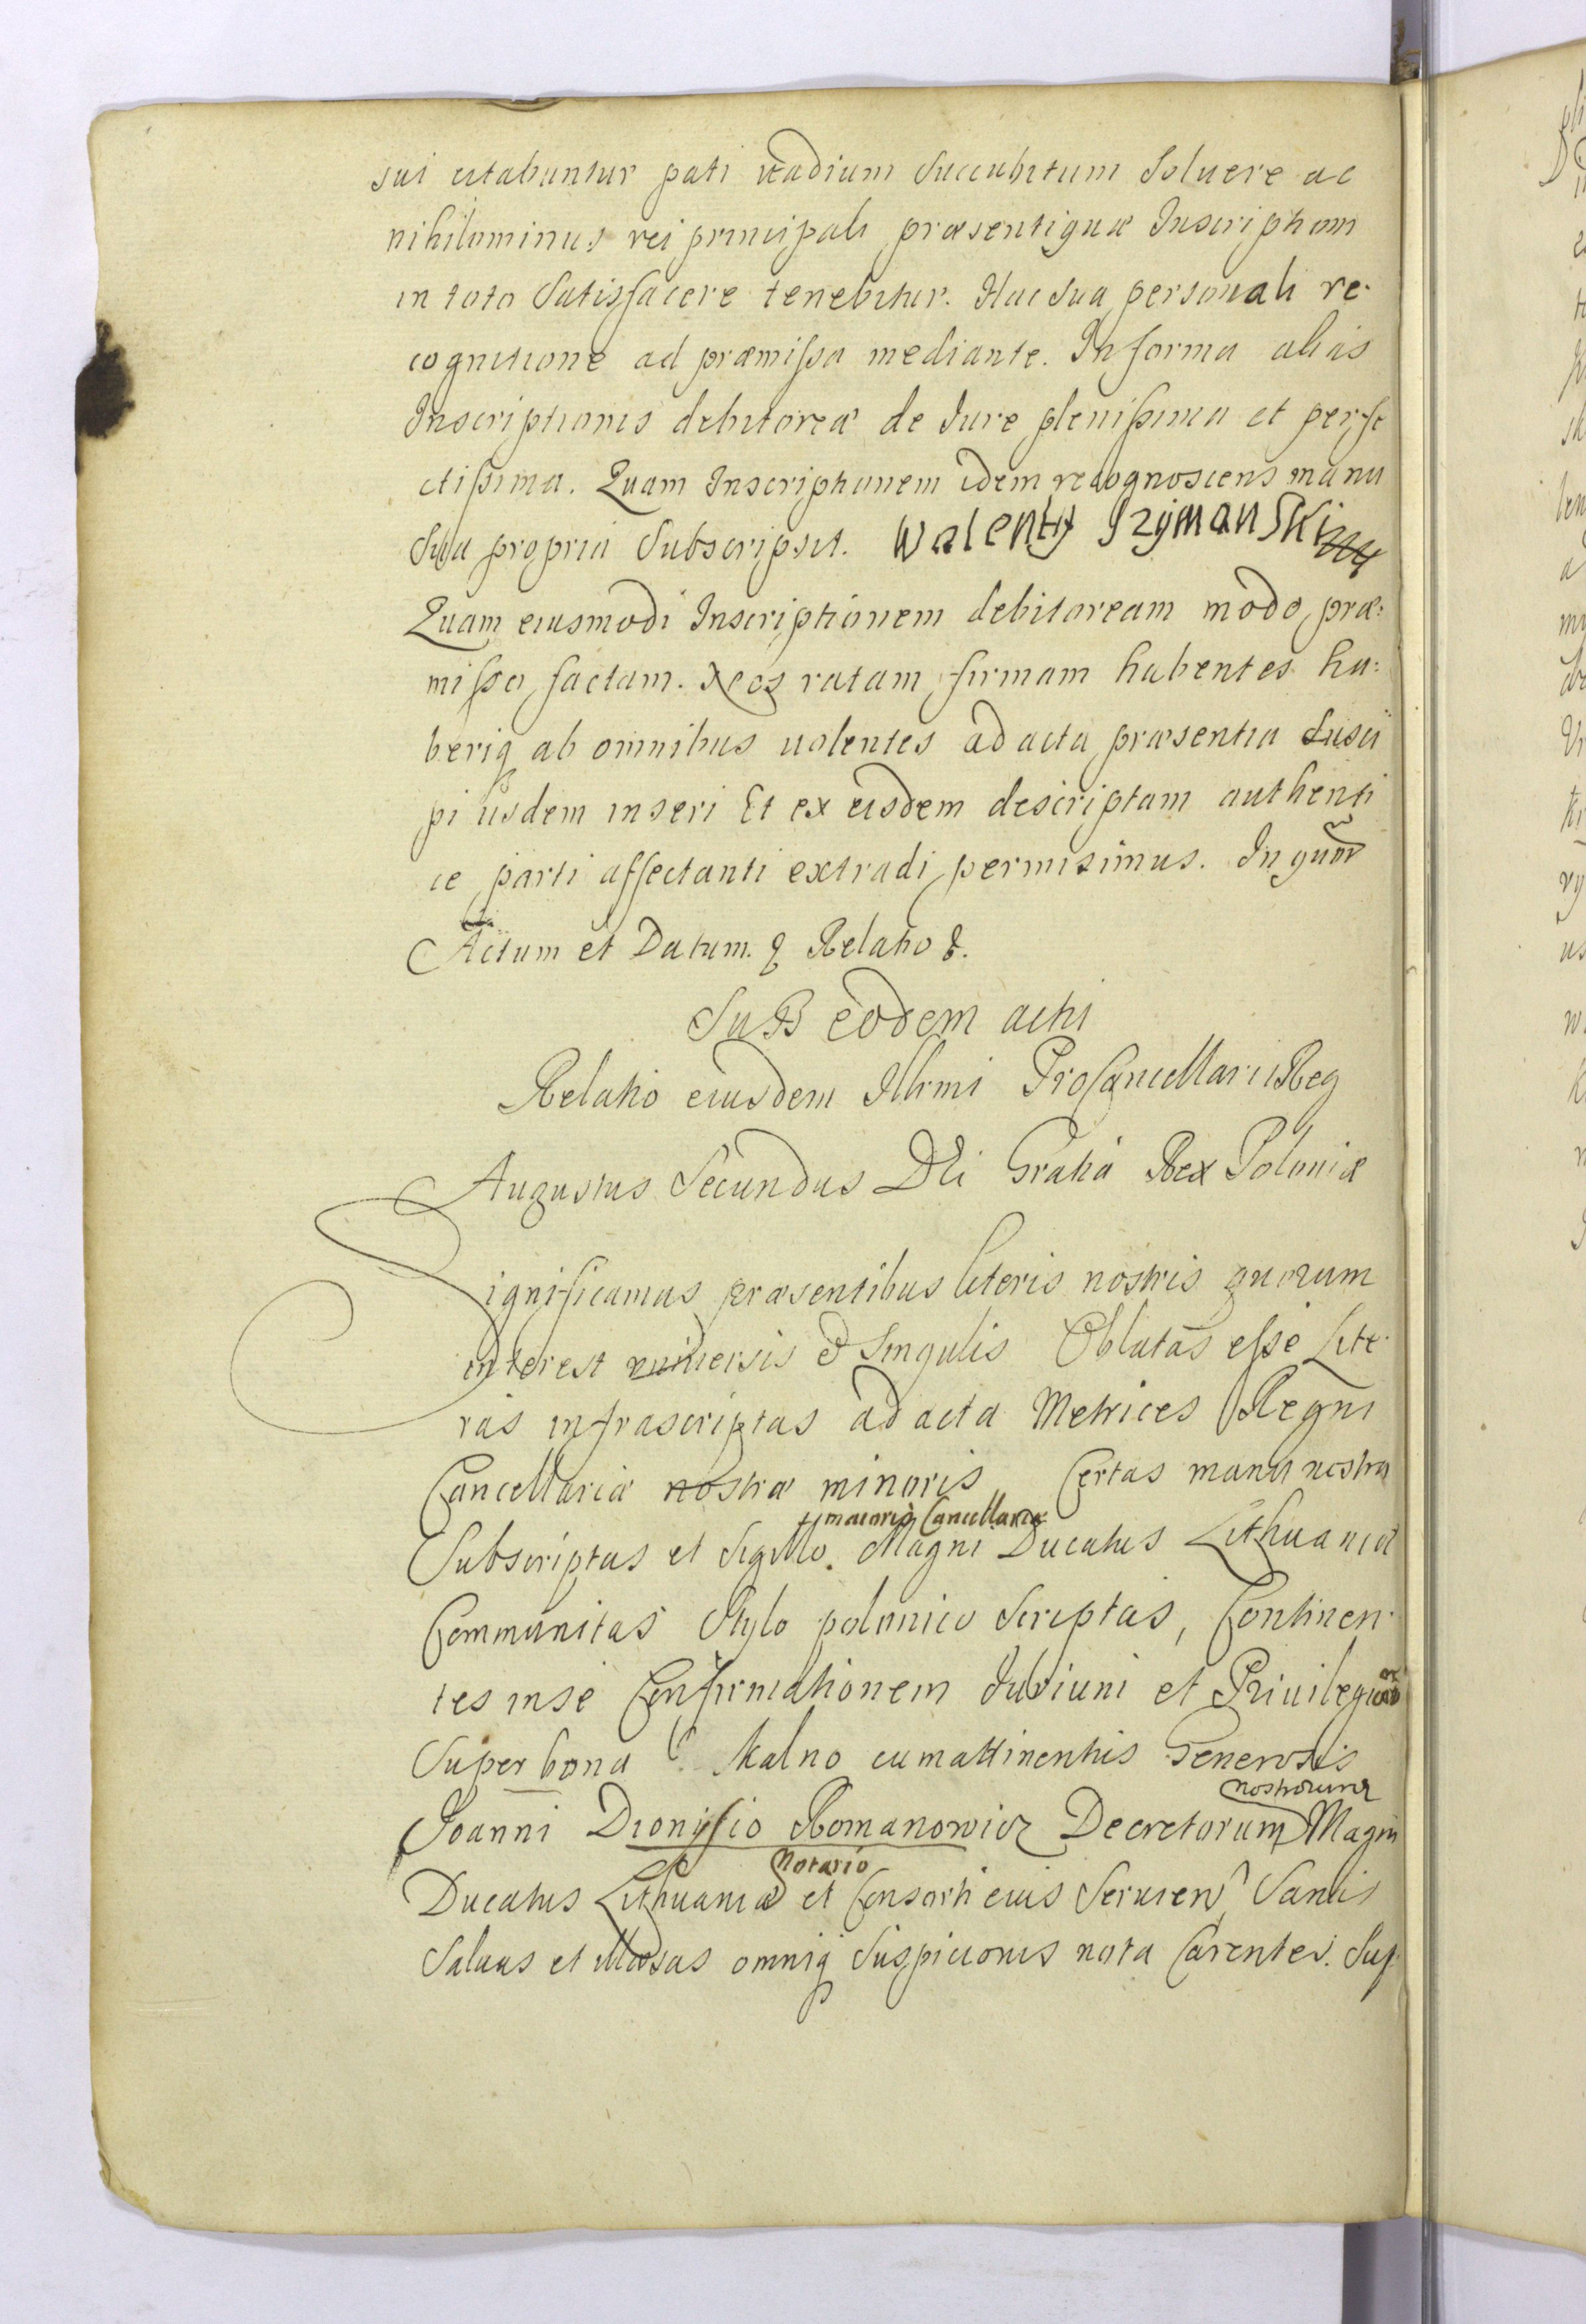 sui citabuntur pati vadium succubitum soluere ac
nihilominus rei principali præsentiquæ Inscriptioni
in toto satisfacere tenebitur. Hac sua personali re-
cognitione ad præmissa mediante. In forma alias
Inscriptionis debitoreæ de Jure plenissima et perfe
ctissima. Quam Inscriptionem idem recognoscens manu
sua propria subscripsit. Walenty Szymanski
Quam eiusmodi Inscriptionem debitoream modo præ:
misso factam. Nos ratam firmam habentes ha:
beriq ab omnibus uolentes ad acta præsentia susci
pi iisdem inseri Et ex eisdem descriptam authenti
ce parti affectanti extradi permisimus. In quor
Actum et Datum. & Relatio &.
Sub eodem actu
Relatio eiusdem Illrmi ProCancellarii Reg
Augustus Secundus DEi Gratia Rex Poloniæ
Significamus præsentibus literis nostris quorum
interest uniuersis et singulis Oblatas esse Lite-
ras infrascriptas ad acta Metrices Regni
Cancellariæ nostræ minoris Certas manu nostra
maioris Cancellariæ
Subscriptas et Sigillo Magni Ducatus Lithuaniæ
Communitas Stylo polonico scriptas, Continen-
tes in se Confirmationem Jurium et Priuilegior
Super bona Skalno cum attinentiis Generosis
nostrorum
Joanni Dionysio Romanowicz Decretorum Magni
Notario
Ducatus Lithuaniæ et Consorti eius Seruien Sanas
Saluas et Illæsas omniq Suspicionis nota Carentes. Sup